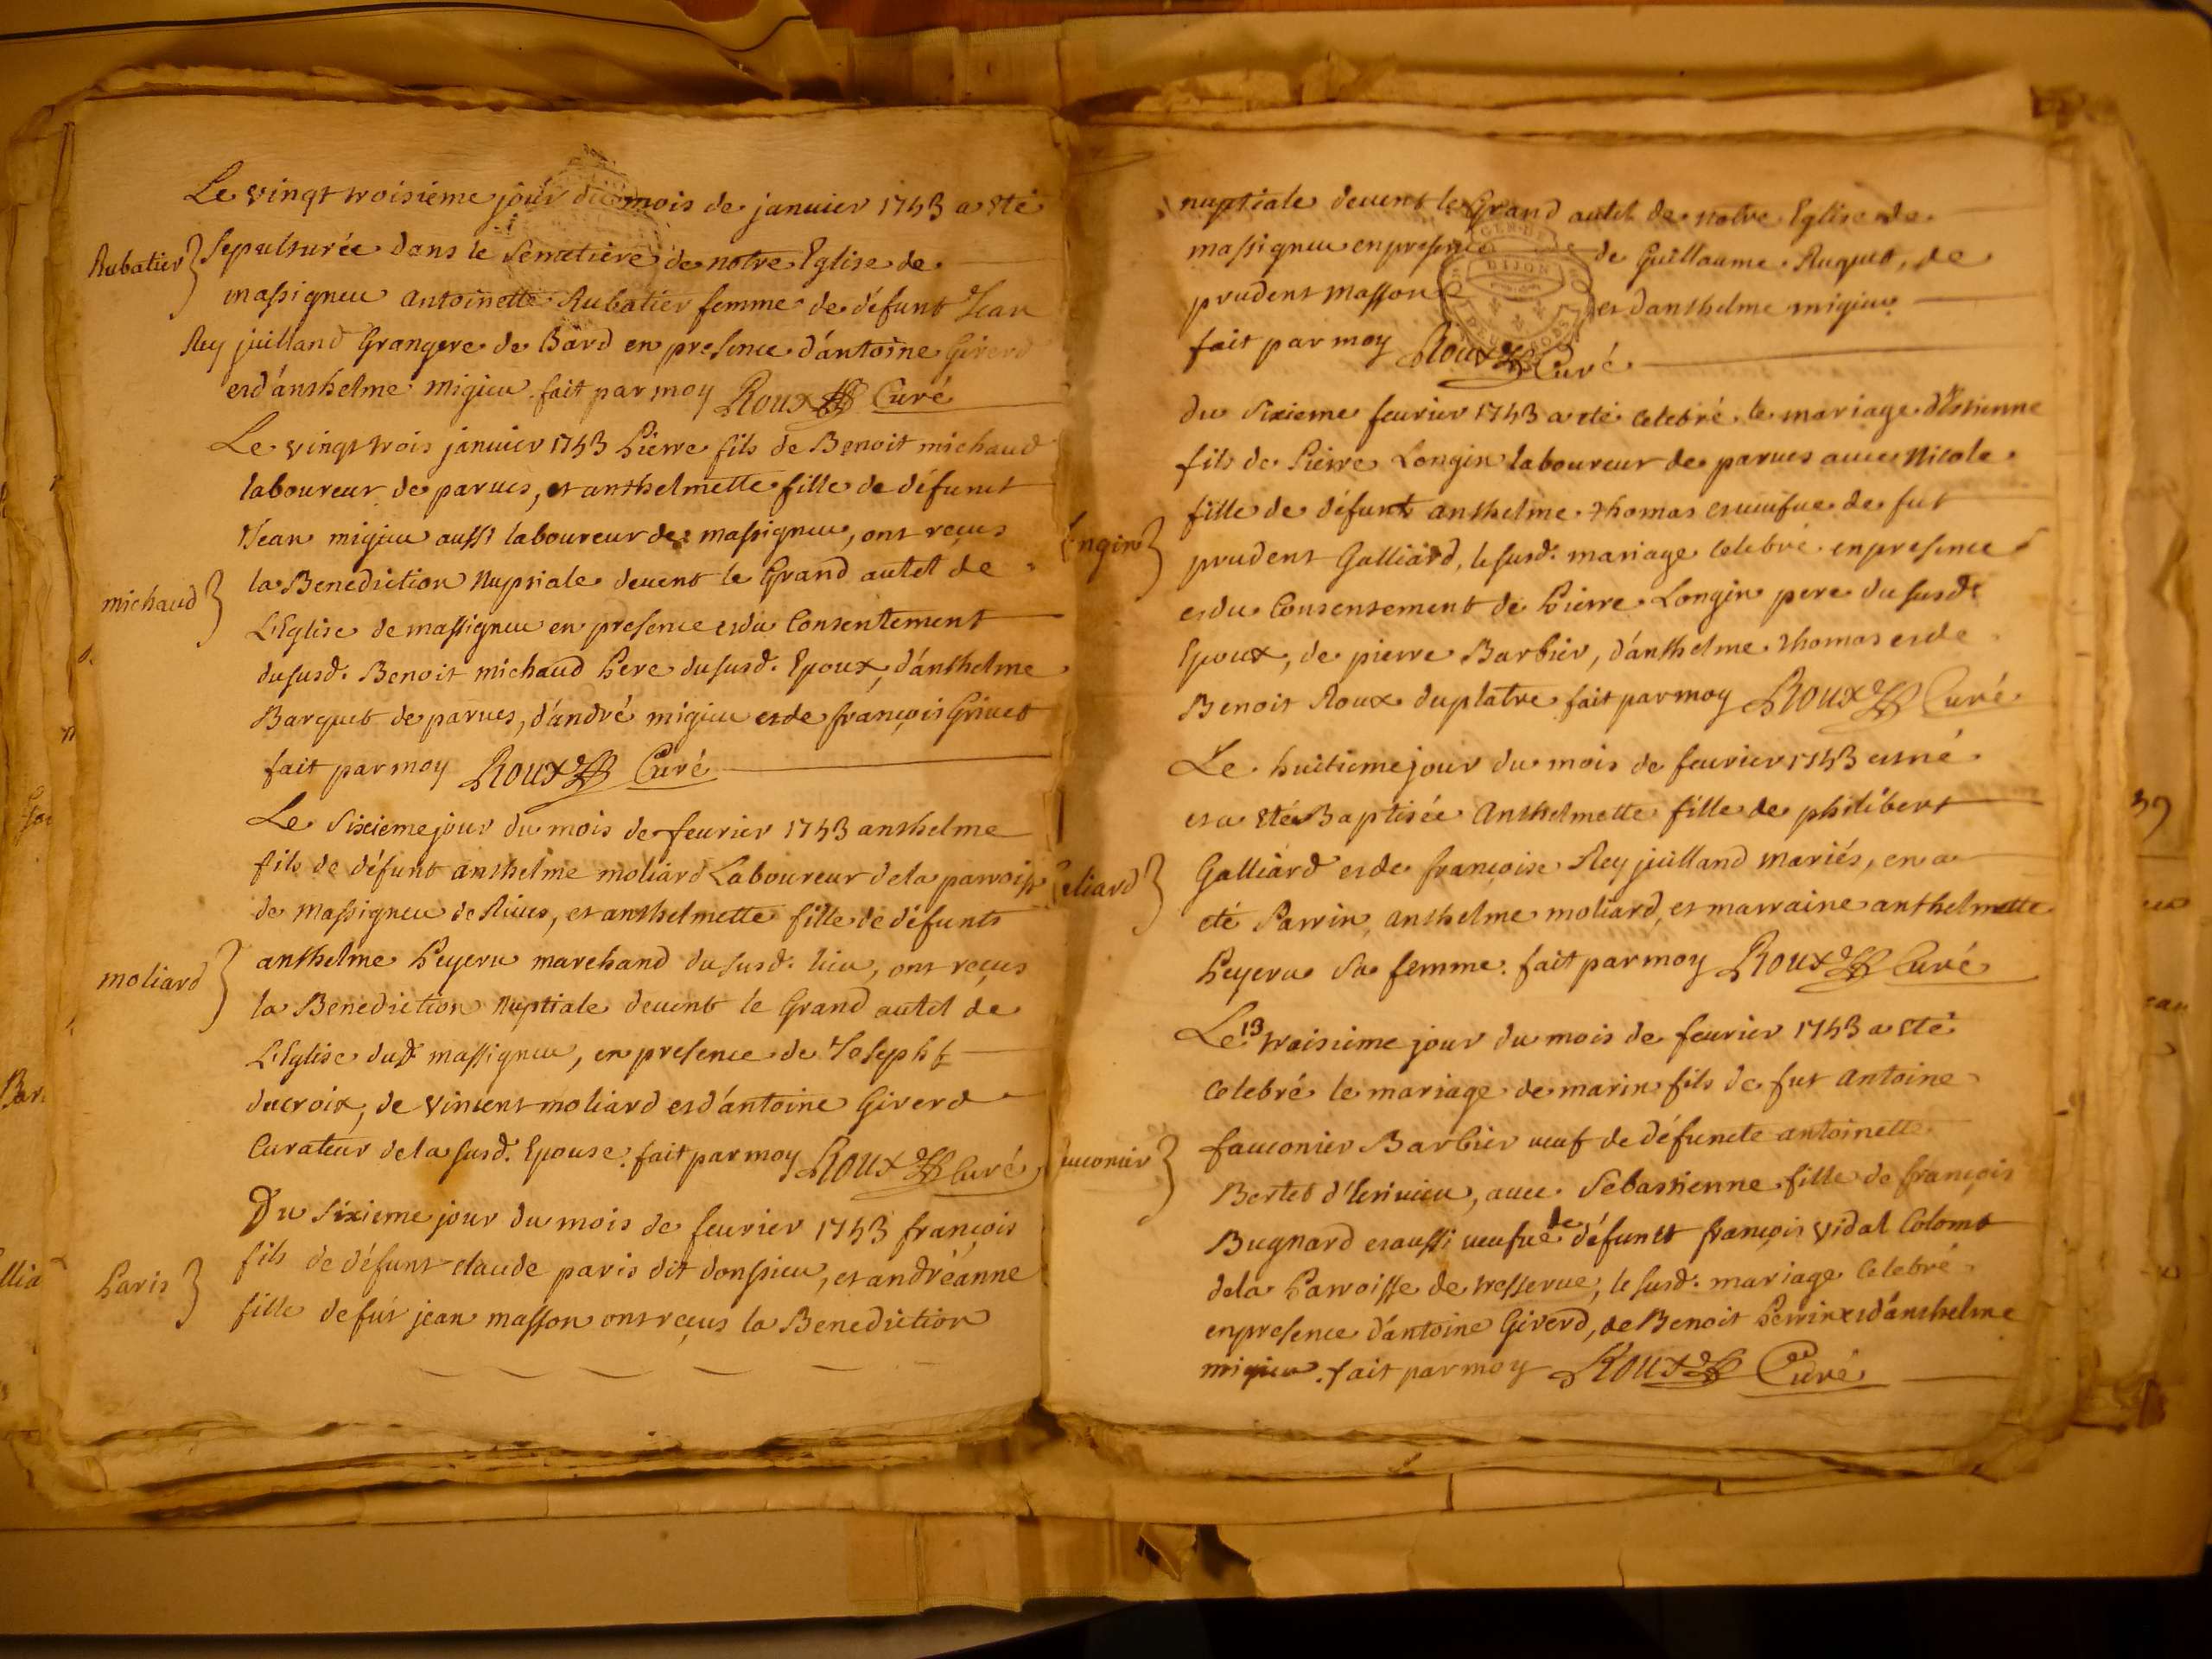 Le vingt troisième jour du mois de januier 1743 a eté
Rubatier
Sepulturée dans le Semetiere de notre Eglise de
massigneu antoinette Rubatier femme de défunt Jean
Rey juilland Grangere de Bard en presence d'antoine Girerd
et d'anthelme migieu. fait par moy Roux Curé
Le vingt trois januier 1743 Pierre fils de Benoit michaud
laboureur de parues, et anthelmette fille de défunct
Jean migieu aussi laboureur de massigneu, ont reçus
michaud
la Benediction Nuptiale deuent le Grand autel de
L'Eglise de massigneu en presence et du Consentement
du susd. Benoit michaud Pere du susd. Epoux, d'anthelme
Barquet de parues, d'andré migieu et de françois Griuet
fait par moy Roux Curé
Le Sixieme jour du mois de feurier 1743 anthelme
fils de défunt anthelme moliard Laboureur de la parroisse
de massigneu de Riues, et anthelmette fille de défunts
moliard
anthelme Peyeru marchand du susd. lieu, ont reçus
la Benediction Nuptiale deuent le Grand autel de
L'Eglise dud massigneu, en presence de Joseph f
ducroix, de Vincent moliard et d'antoine Girerd
Curateur de la susd. Epouse. fait par moy Roux Curé
Du Sixieme jour du mois de feurier 1743 françois
Paris
fils de défunt claude paris dit donssieu, et andréanne
fille de fut jean masson ont reçus la Benediction
nuptiale deuent le Grand autel de notre Eglise de
massigneu en presence de Guillaume Ruquet, de
prudent masson et d'anthelme migieu
fait par moy Roux Curé
GEN. DE
DIJON
du Sixieme feurier 1743 a eté Celebré le mariage d'Estienne
fils de Pierre Longin laboureur de parues auec Nicole
fille de défunt anthelme thomas et ueufue de fut
ngin
prudent Galliard, le susd. mariage Celebré en presence
et du Consentement de Pierre Longin pere du susd.
Epoux, de pierre Barbier, d'anthelme thomas et de
Benoit Roux du platre fait par moy Roux Curé
Le huitieme jour du mois de feurier 1743 est né
et a eté Baptisée Anthelmette fille de philibert
lliard
Galliard et de françoise Rey juilland mariés, en a
eté Parrin anthelme moliard, et marraine anthelmette
Peyeru Sa femme. fait par moy Roux Curé
Le 13 troisieme jour du mois de feurier 1743 a eté
Celebré le mariage de marin fils de fut Antoine
uconier
fauconier Barbier ueuf de défuncte antoinette
Bertet, auec Sebastienne fille de françois
Bugnard et aussi ueufue de défunct françois Vidal Colomb
de la Parroisse de tresserue, le susd. mariage Celebré
en presence d'antoine Girerd, de Benoit Perrin et d'anthelme
migieu. fait par moy Roux Curé